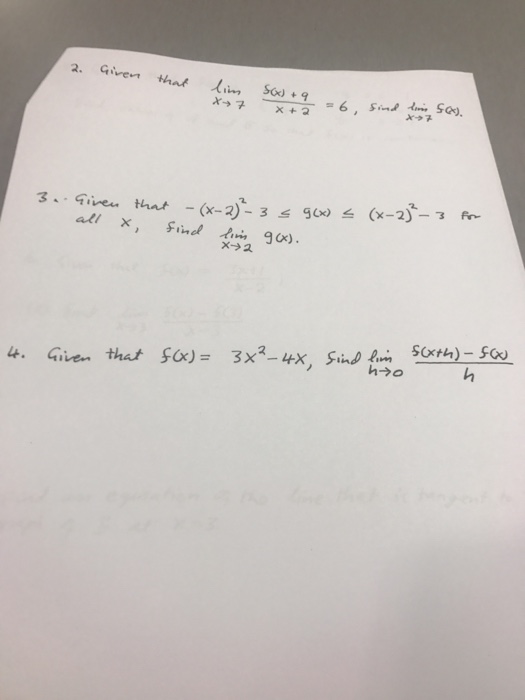 2. Given that lim x→7 f(x)+9 / x+2 = 6, find lim x→7 f(x).
3. Given that -(x-2)²-3 ≤ g(x) ≤ (x-2)²-3 for
all x, find lim x→2 g(x).
4. Given that f(x) = 3x²-4x, find lim h→0 f(x+h)-f(x) / h